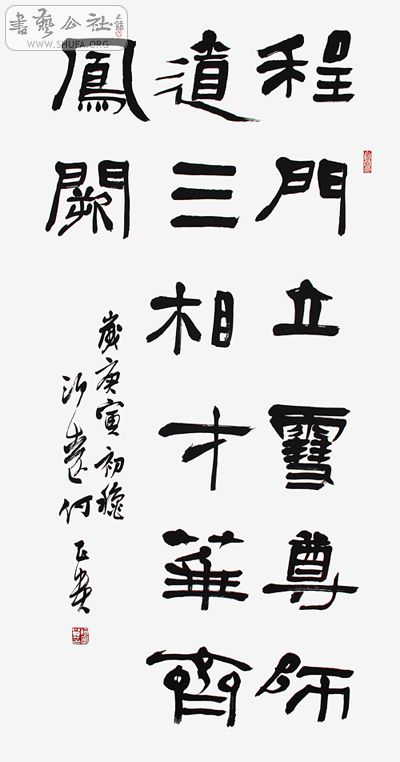 程門立雪尊師
道三相才華齊
鳳闕
歲庚寅初穐
何
書藝公社
WWW.SHUFA.ORG